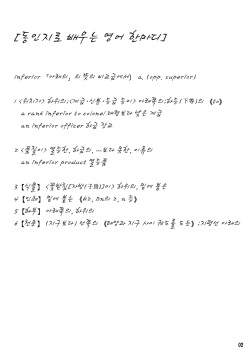 [동인지로 배우는 영어 한마디]
Inferior 「아래의」의 뜻의 비교급에서) a. (opp. superior)
1 <위치가> 하위의; <계급·신분·등급 등이> 아래쪽의; 하등[下等]의 (to)
a rank inferior to colonel 대령보다 낮은 계급
an inferior officer 하급 장교
2 <품질이> 열등한, 하급의, …보다 못한, 이류의
an inferior product 열등품
3 [식물] <꽃받침[자방(子房)]이> 하위의, 밑에 붙은
4 [인쇄] 밑에 붙은 (H2, Dn의 2, n 등)
5 [해부] 아래쪽의, 하위의
6 [천문] (지구보다) 안쪽의 (태양과 지구 사이 궤도를 도는) ; 지평선 아래의
02